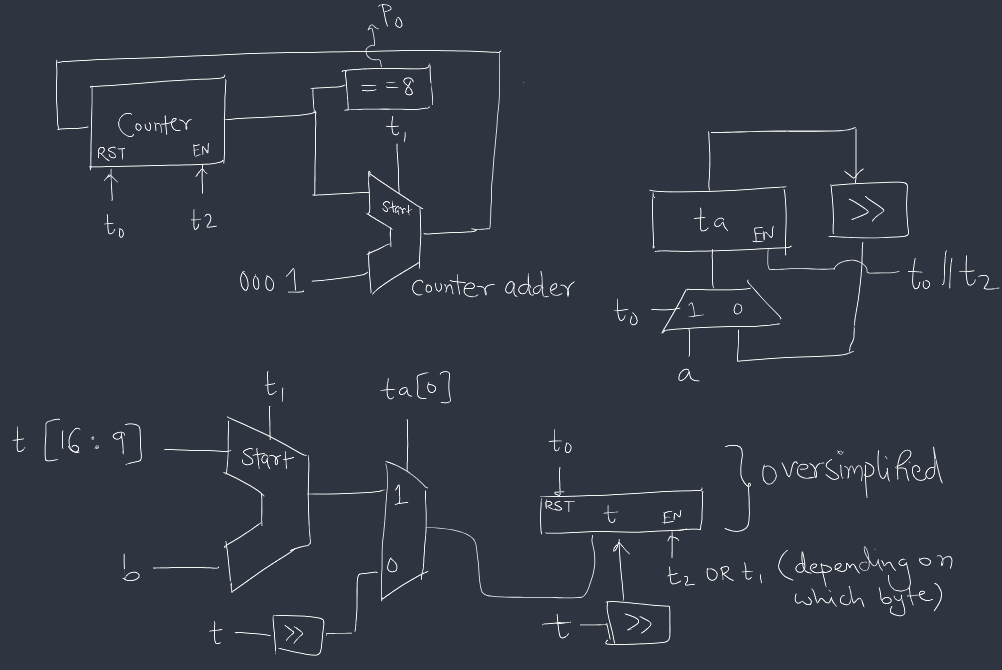 P0
= = 8
Counter
RST
EN
t0
t2
t1
Start
000 1
counter adder
ta
EN
>>
t0 || t2
t0
1 0
a
t1
ta[0]
t [16: 9]
Start
1
0
b
t
>>
t0
RST
t
EN
oversimplified
t2 OR t1 (depending on
which byte)
t
>>